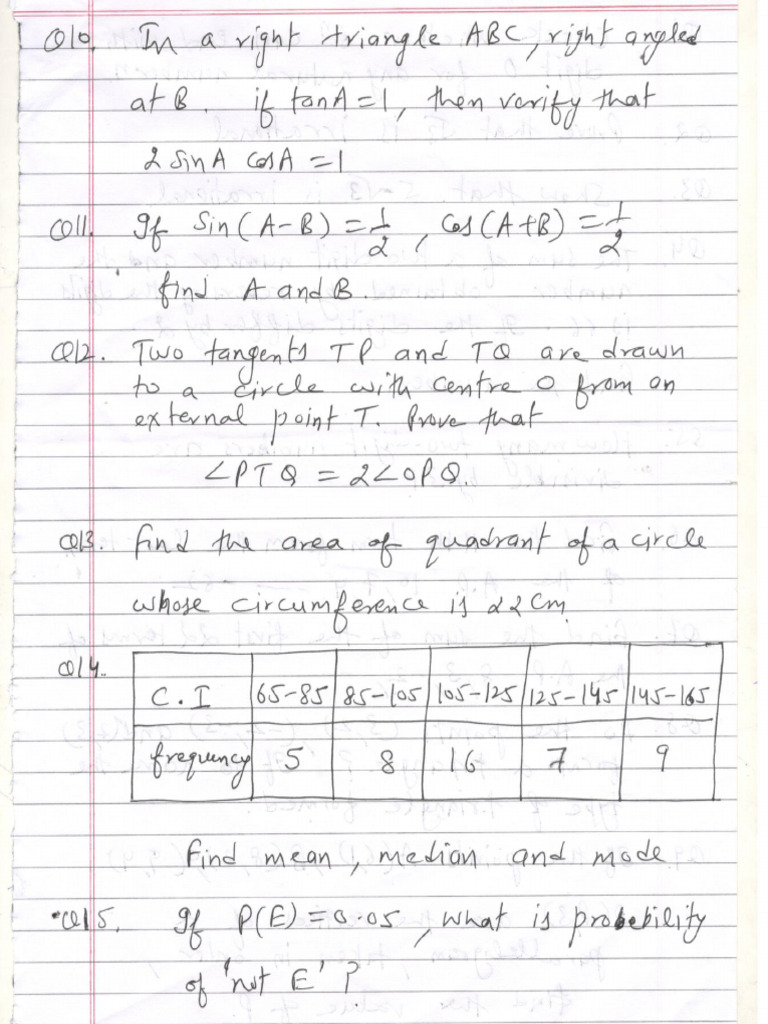 Q10. In a right triangle ABC, right angled
at B. if tanA = 1, then verify that
2 sinA cosA = 1
Q11. If Sin(A-B) = 1/2, Cos(A+B) = 1/2
find A and B.
Q12. Two tangents TP and TQ are drawn
to a circle with centre O from an
external point T. Prove that
∠PTQ = 2∠OPQ.
Q13. find the area of quadrant of a circle
whose circumference is 22 cm.
Q14.
C.I 65-85 85-105 105-125 125-145 145-165
frequency 5 8 16 7 9
find mean, median and mode
Q15. If P(E) = 0.05, what is probebility
of 'not E'?